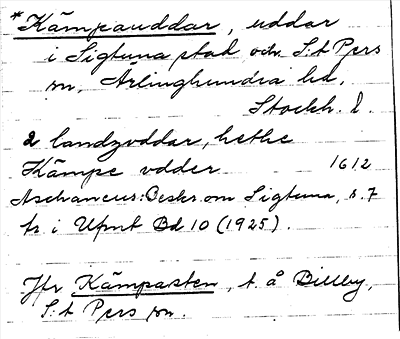 *Kämpauddar, uddar
i Sigtuna stad och S:t Pers
sn, Ärlinghundra hd,
Stockh. l.
2 landzvddar, hethe
Kämpe vdder 1612
Aschaneus: Beskr. om Sigtuna, s. 7
tr. i Upmt Bd 10 (1925).
Jfr Kämpasten, t. å Billby,
S:t Pers sn.